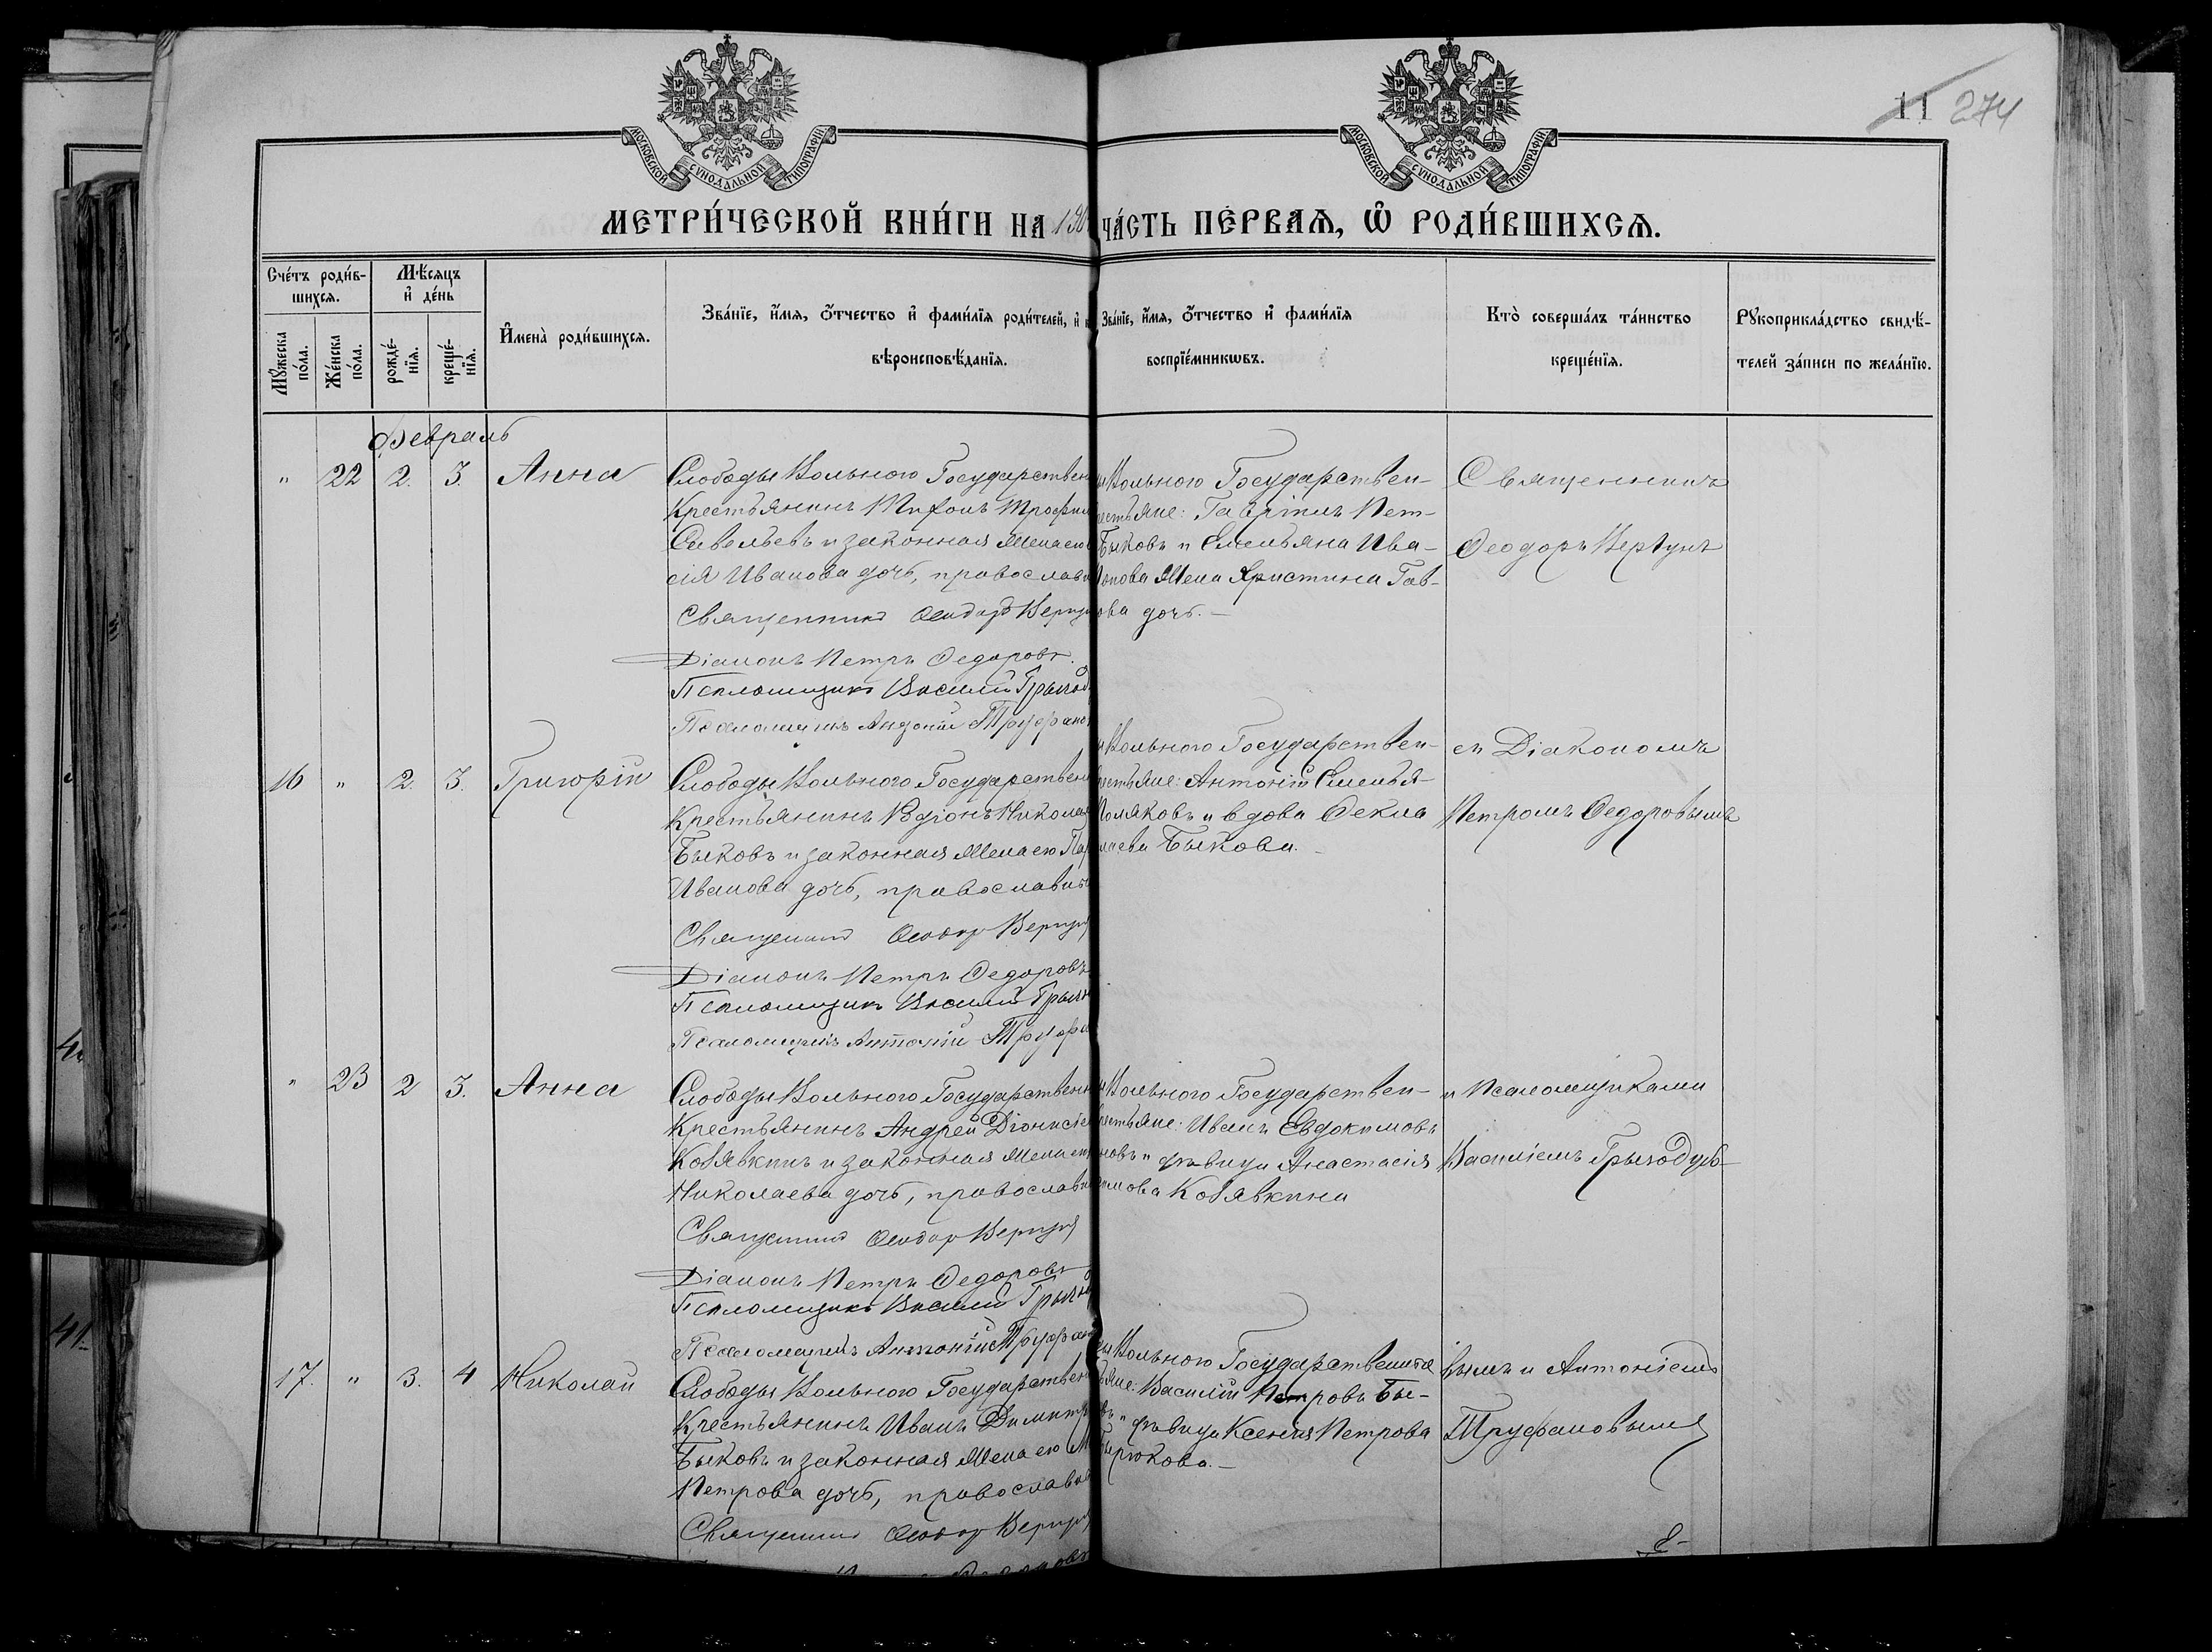 11 274
МОСКОВСКОЙ СУНОДАЛЬНОЙ ТИПОГРАФІИ
МОСКОВСКОЙ СУНОДАЛЬНОЙ ТИПОГРАФІИ
МЕТРИ́ЧЕСКОЙ КНИ́ГИ НА 190
ЧА́СТЬ ПЕ́РВАѦ, Ѡ҆ РОДИ́ВШИХСѦ.
Сче́тъ роди́в-
шихсѧ.
Мꙋ́жеска
по́ла.
Же́нска
по́ла.
Мѣ́сѧцъ
и҆ де́нь
рожде́-
нїѧ.
креще́-
нїѧ.
И҆мена̀ роди́вшихсѧ.
Зва́нїе, и҆́мѧ, ѻ҆́тчество и҆ фами́лїѧ роди́телей, и҆
вѣроисповѣ́данїѧ.
Зва́нїе, и҆́мѧ, ѻ҆́тчество и҆ фами́лїѧ
воспрїе́мникѡвъ.
Кто̀ соверша́лъ та́инство
креще́нїѧ.
Рꙋкоприкла́дство свидѣ́-
телей за́писи по жела́нїю.
Февраль
" 22 2. 3. Анна
Слободы Вольного Государствен
Крестьянинъ Трофим
Савельевъ и законная жена его
сія Иванова дочь, православн
Священникъ Ѳеодоръ Вертун
Діаконъ Петръ Ѳедоровъ.
Псаломщикъ Василій Грызод
Псаломщикъ Антоній Труфанов
Вольного Государствен-
рестьяне: Гавріилъ Пет-
Быковъ и Емельяна Ива-
Попова жена Христина Гав-
ова дочь.-
Священникъ
Ѳеодоръ Вертунъ
16 " 2. 3. Григорій
Слободы Вольного Государствен
Крестьянинъ Родіонъ Никола
Быковъ и законная жена его Па
Иванова дочь, православн
Священникъ Ѳеодор Вертун
Діаконъ Петръ Ѳедоровъ
Псаломщикъ Василій Грызо
Псаломщикъ Антоній Труфа
Вольного Государствен-
естьяне: Антоній Емелья-
Поляковъ и вдова Ѳекла
лаева Быкова.-
съ Діакономъ
Петромъ Ѳедоровымъ
" 23 2 3. Анна
Слободы Вольного Государствен
Крестьянинъ Андрей Діонисіе
Козявкинъ и законная жена его
Николаева дочь, православн
Священникъ Ѳеодор Вертун
Діаконъ Петръ Ѳедоровъ
Псаломщикъ Василій Грызо
Псаломщикъ Антоній Труфан
Вольного Государствен-
рестьяне: Иванъ Евдокимовъ
новъ и дѣвица Анастасія
имова Козявкина
и Псаломщиками
Василіемъ Грызодубо-
17. " 3. 4 Николай
Слободы Вольного Государствен
Крестьянинъ Иванъ Димитр
Быковъ и законная жена его М
Петрова дочь, православн
Священникъ Ѳеодор Вертун
Вольного Государственные
яне: Василій Петровъ Бы-
въ и дѣвица Ксенія Петрова
Бирюкова.-
вымъ и Антоніемъ
Труфановымъ
41.